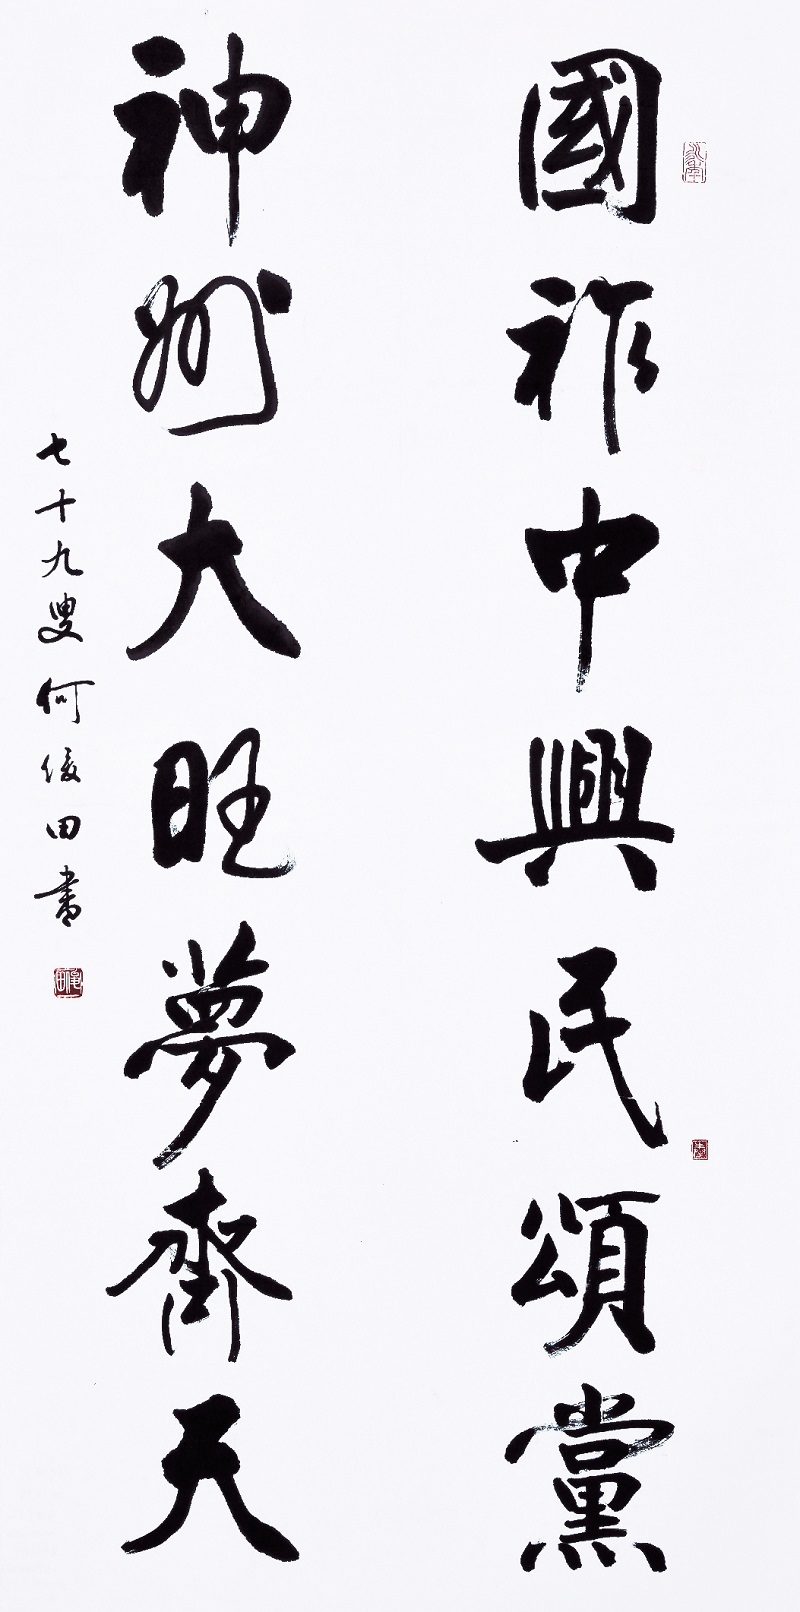 國祚中興民頌黨
神州大旺夢齊天
七十九叟何俊田書